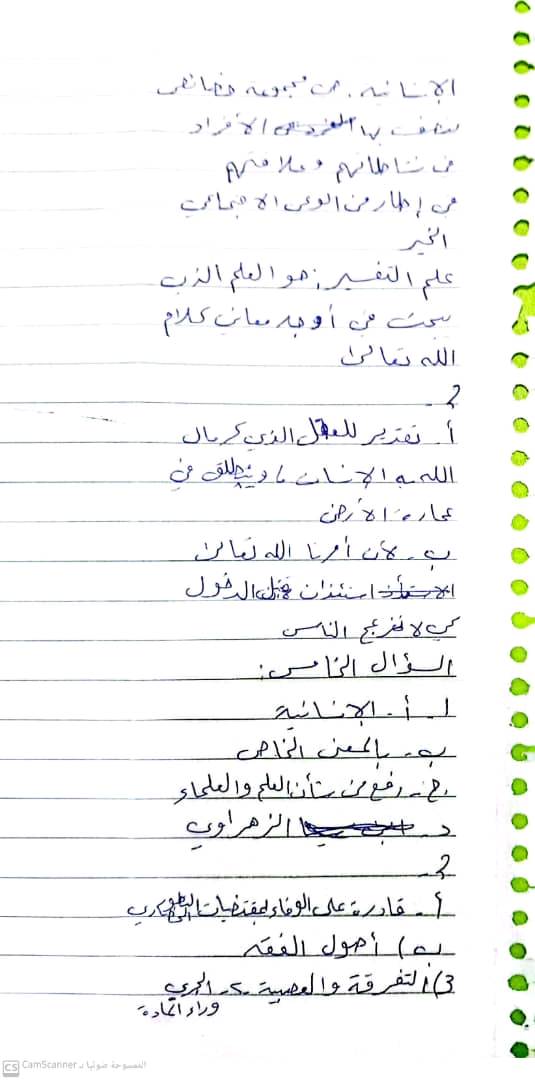 الإنسانية. هي مجموعة خصائص
يتصف بها الأفراد
في نشاطاتهم وعلاقتهم
في إطار من الوعي الاجتماعي
الخير
علم التفسير: هو العلم الذي
يبحث في أوجه معاني كلام
الله تعالى
2.
أ. تقدير للعقل الذي كرم
الله به الإنسان وينطلق في
عمارة الأرض
ب. لأن أمرنا الله تعالى
استئذان قبل الدخول
كي لا نزعج الناس
السؤال الخامس:
1. أ. الإنسانية
ب. بالمعنى الخاص
ج. رفع من شأن العلم والعلماء
د. الزهراوي
2.
أ. قادرة على الوفاء بمقتضيات
ب) أصول الفقه
3) التفرقة والعصبية 2. الجري
وراء المادة
الممسوحة ضوئيا بـ CamScanner
CS